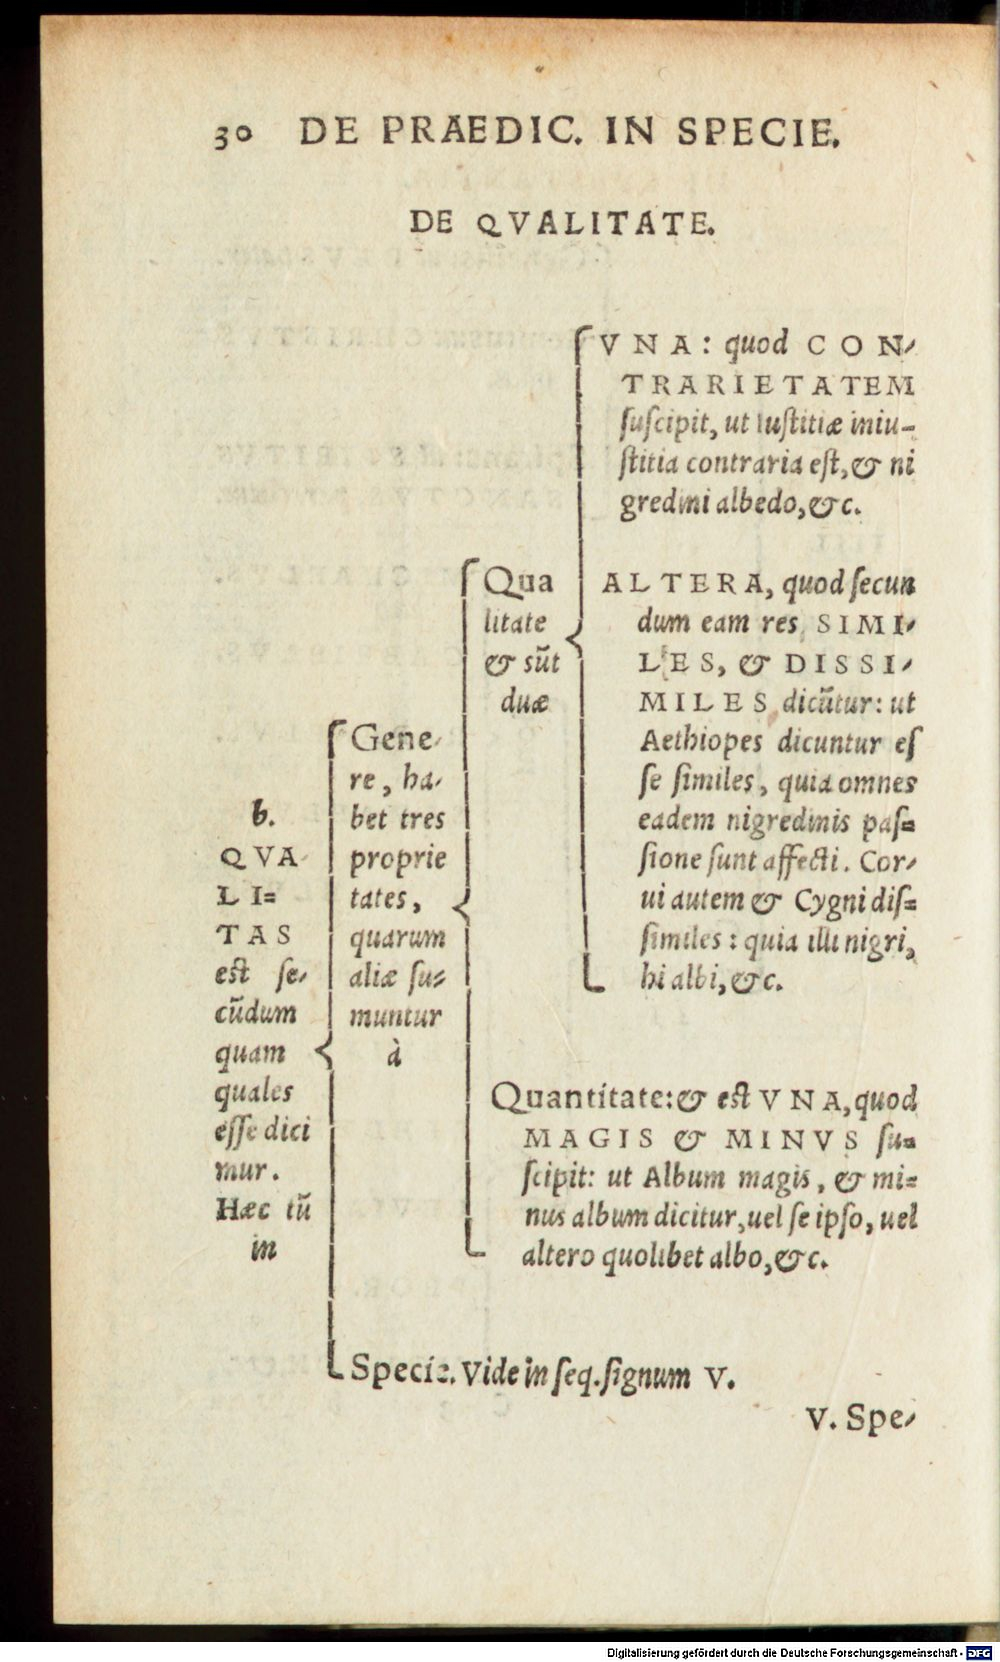 30 DE PRAEDIC. IN SPECIE.
DE QVALITATE.
b.
QVA
LI=
TAS
est ſe-
cũdum
quam
quales
eſſe dici
mur.
Hæc tũ
in
Gene-
re, ha-
bet tres
proprie
tates,
quarum
aliæ ſu-
muntur
à
Qua
litate
& sũt
duæ
VNA: quod CON-
TRARIETATEM
ſuſcipit, ut Iuſtitiæ iniu-
ſtitia contraria eſt, & ni
gredini albedo, &c.
ALTERA, quod ſecun
dum eam res SIMI-
LES, & DISSI-
MILES dicũtur: ut
Aethiopes dicuntur eſ
ſe ſimiles, quia omnes
eadem nigredinis paſ=
ſione ſunt affecti. Cor-
ui autem & Cygni diſ=
ſimiles: quia illi nigri,
hi albi, &c.
Quantitate: & eſt VNA, quod
MAGIS & MINVS ſu=
ſcipit: ut Album magis, & mi=
nus album dicitur, uel ſe ipſo, uel
altero quolibet albo, &c.
Specie. Vide in ſeq. ſignum V.
V. Spe-
Digitalisierung gefördert durch die Deutsche Forschungsgemeinschaft - DFG